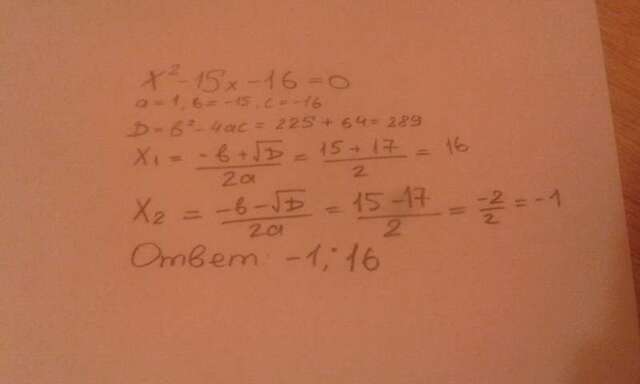 x² - 15x - 16 = 0
a = 1, b = -15, c = -16
D = b² - 4ac = 225 + 64 = 289
X₁ = (-b + √D)/2a = (15 + 17)/2 = 16
X₂ = (-b - √D)/2a = (15 - 17)/2 = -2/2 = -1
Ответ: -1; 16